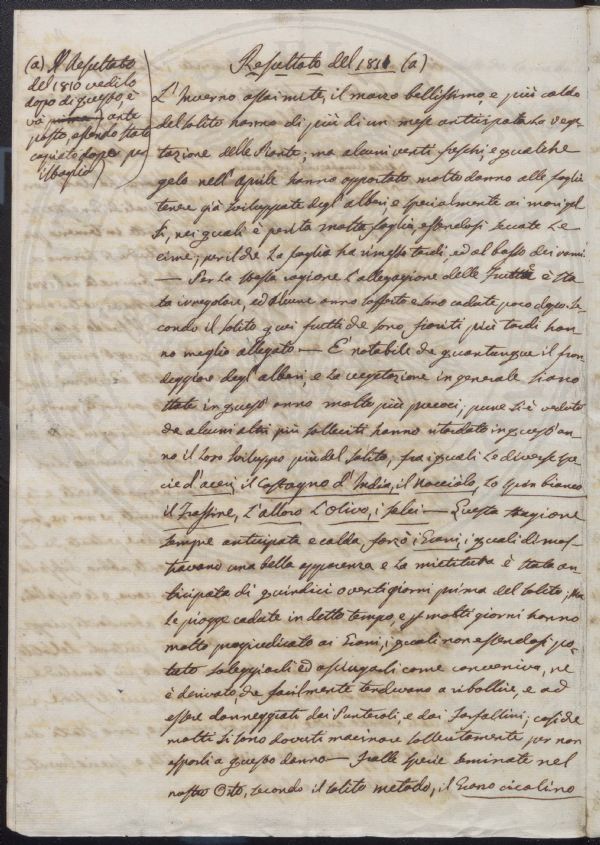 (a) Il Resultato
del 1810 vedilo
dopo di questo, e
va ante
posto, essendo stato
copiato dopo per
isbaglio
Resultato del 1811 (a)
L'Inverno assai mite, il marzo bellissimo, e più caldo
del solito hanno di più di un mese anticipata la vege-
tazione delle Piante; ma alcuni venti freschi, e qualche
gelo nell'Aprile hanno apportato molto danno alle foglie
tenere già sviluppate degl'alberi e specialmente ai mori gel-
si, nei quali è perita molta foglia, essendosi seccate le
cime; per il che la foglia ha rimesso tardi, ed al basso dei rami.
— Per la stessa ragione l'allegagione delle Frutte è sta-
ta irregolare, ed alcune anno sofferto e sono cadate poco dopo se-
condo il solito quei frutti che sono fioriti più tardi han-
no meglio allegato — E' notabile che quantunque il fio-
reggiare degl'alberi, e la vegetazione in generale siano
state in quest'anno molto più precoci, pure si è veduto
che alcuni altri più solleciti hanno ritardato in quest'an-
no il loro sviluppo più del solito, fra i quali le diverse spe-
cie d'aceri, il Castagno d'India, il Nocciolo, lo Spin bianco
il Frassine, L'alloro L'olivo, i Salci — Questa stagione
sempre anticipata e calda, forzò i Grani, i quali dimos-
travano una bella apparenza e la mietitura è stata an-
ticipata di quindici o venti giorni prima del solito; Ma
le piogge cadute in detto tempo, e per molti giorni hanno
molto pregiudicato ai Grani, i quali non essendosi po-
tuto soleggiarli ed asciugarli come conveniva, ne
è derivato, che facilmente tendevano a ribollire, e ad
essere danneggiati dai Punteroli, e dai Farfallini; cosiche
molti si sono dovuti macinare sollecitamente per non
esporli a questo danno — Fralle specie seminate nel
nostro Orto, secondo il solito metodo, il Grano cicalino